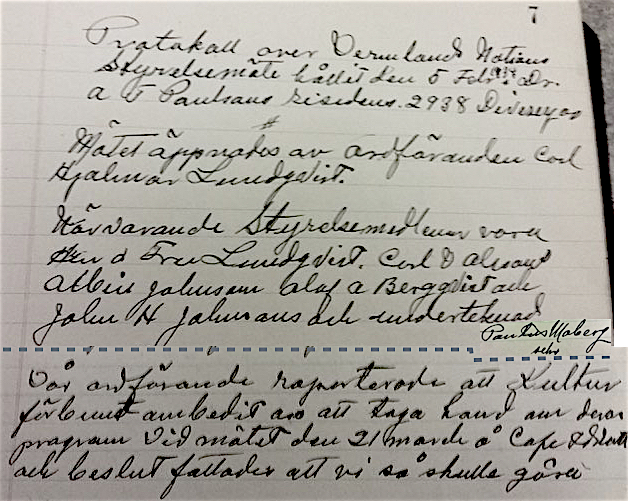 7
Protokoll över Vermlands Nations
Styrelsemöte hållit den 5 Febr. Dr.
A T Paulsons residens. 2938 Diversey av
Mötet öppnades av Ordföranden Carl
Hjalmar Lundqvist.
Närvarande Styrelsemedlemmar voro
Herr o Fru Lundqvist. Carl O
Albin Johnson Olof A Bergqvist och
John H Johnsons och undertecknad
Paulus Moberg
sekr
Vår ordförande raporterade att Kultur
förbunet ambedit oss att taga hand om deras
program vid mötet den 21 march å Cafe
och beslut fattades att vi så skulle göra